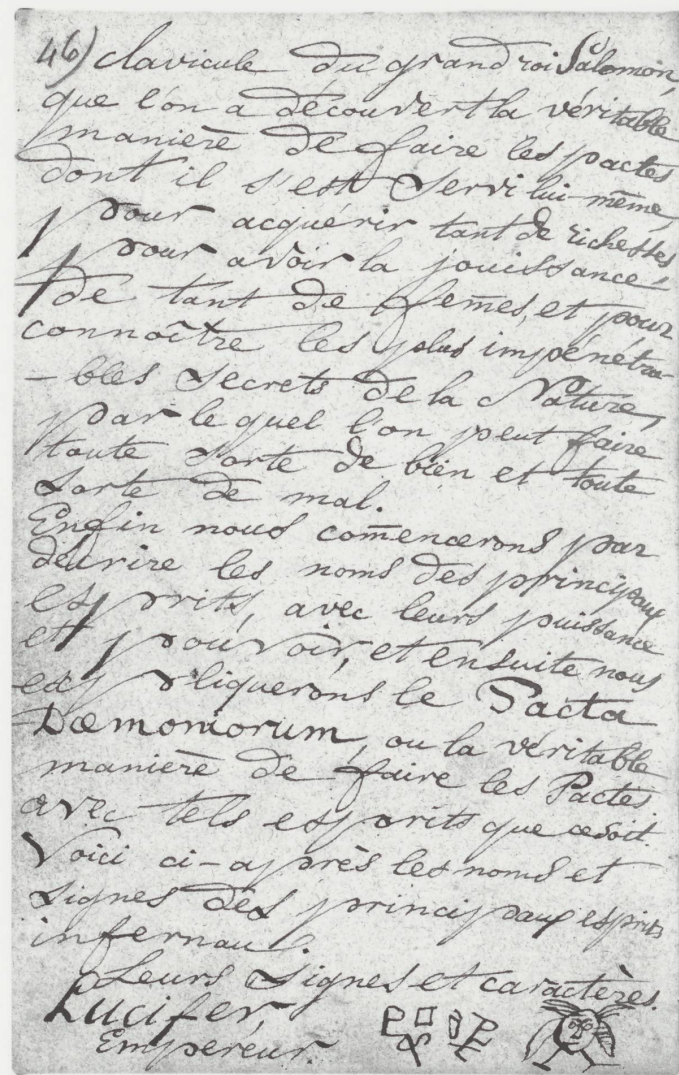 46) clavicule du grand roi Salomon,
que l'on a découvert la véritable
maniere de faire les pactes
dont il s'est servi lui-même,
pour acquérir tant de richesses
pour avoir la jouissance
de tant de femes, et pour
connaître les plus impénétra-
-bles secrets de la Nature,
par le quel l'on peut faire
toute sorte de bien et toute
sorte de mal.
Enfin nous comencerons par
décrire les noms des principaux
esprits, avec leurs puissance
et pouvoir, et ensuite nous
expliquerons le Pacta
Dæmoniorum, ou la véritable
maniere de faire les Pactes
avec tels esprits que ce soit.
Voici ci-après les noms et
signes des principaux esprits
infernaux.
Leurs signes et caractères.
Lucifer,
Empereur.